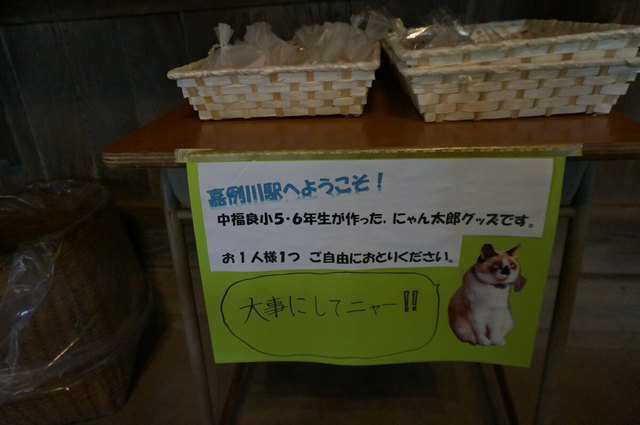 嘉例川駅へようこそ！
中福良小5・6年生が作った、にゃん太郎グッズです。
お1人様1つ ご自由におとりください。
大事にしてニャー!!